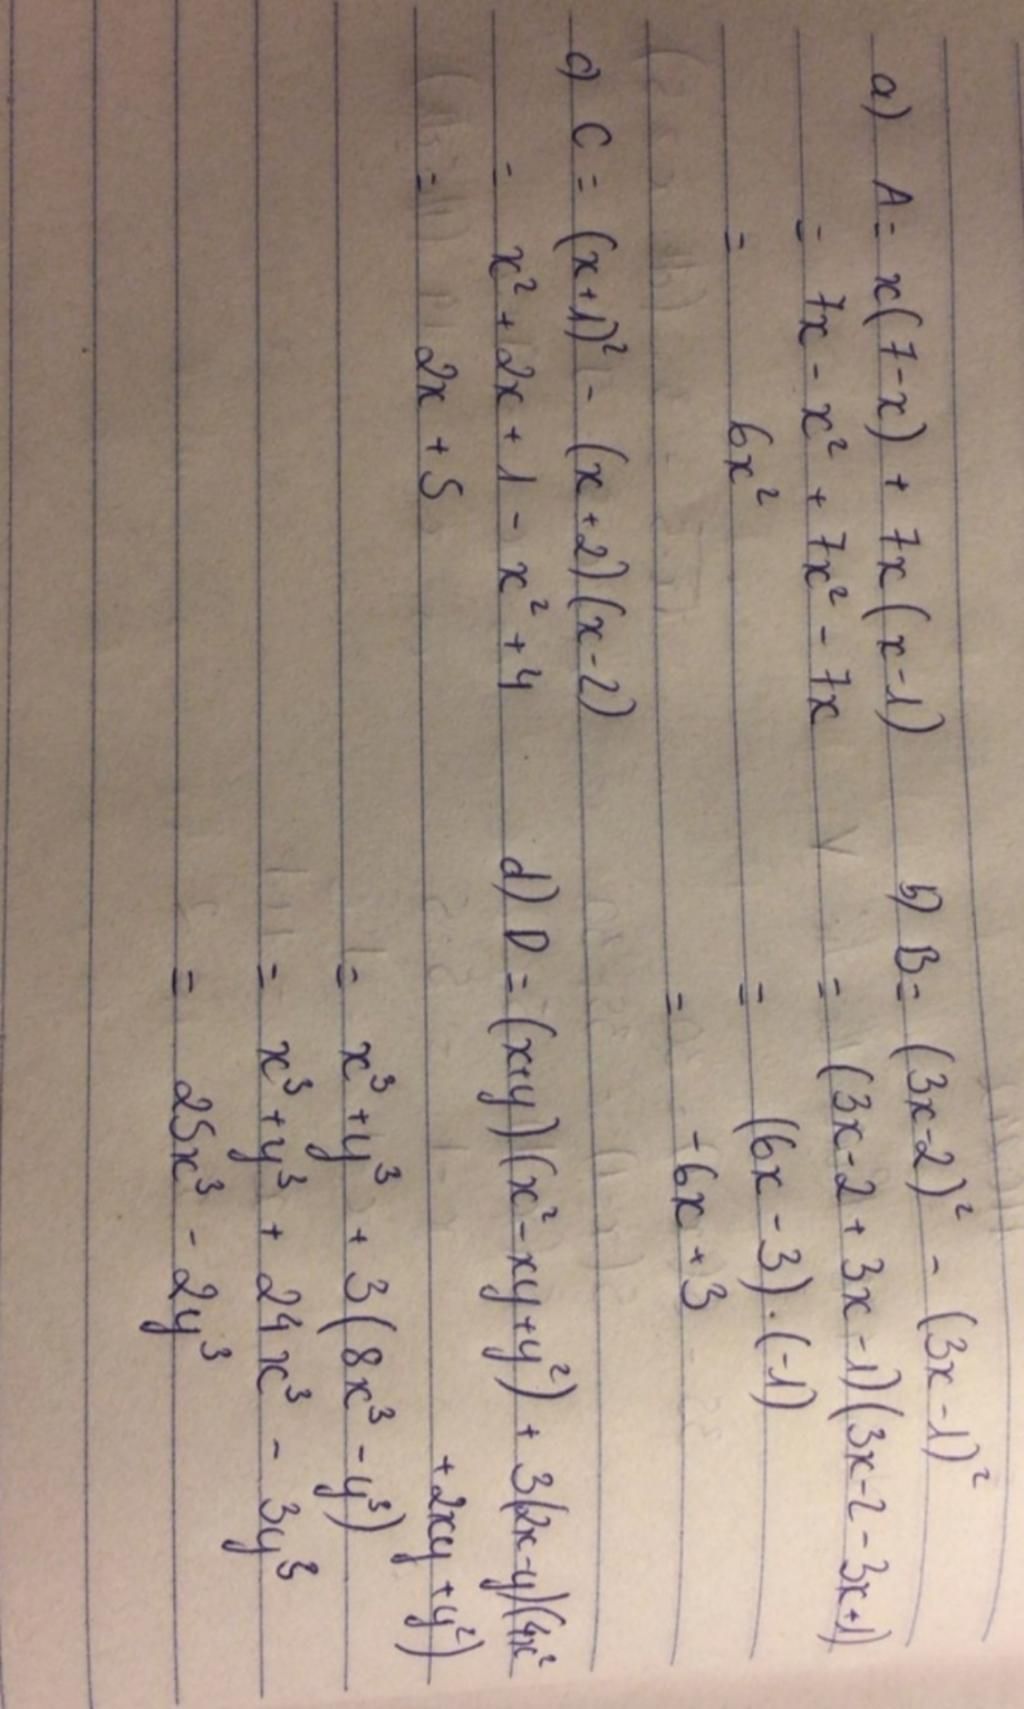 a) A = x(7-x) + 7x(x-1)
= 7x - x² + 7x² - 7x
= 6x²
b) B = (3x-2)² - (3x-1)²
= (3x-2+3x-1)(3x-2-3x+1)
= (6x-3).(-1)
= -6x+3
c) C = (x+1)² - (x+2)(x-2)
= x² + 2x + 1 - x² + 4
= 2x + 5
d) D = (x+y)(x²-xy+y²) + 3(2x-y)(4x²
+2xy+y²)
= x³+y³ + 3(8x³-y³)
= x³+y³ + 24x³ - 3y³
= 25x³ - 2y³